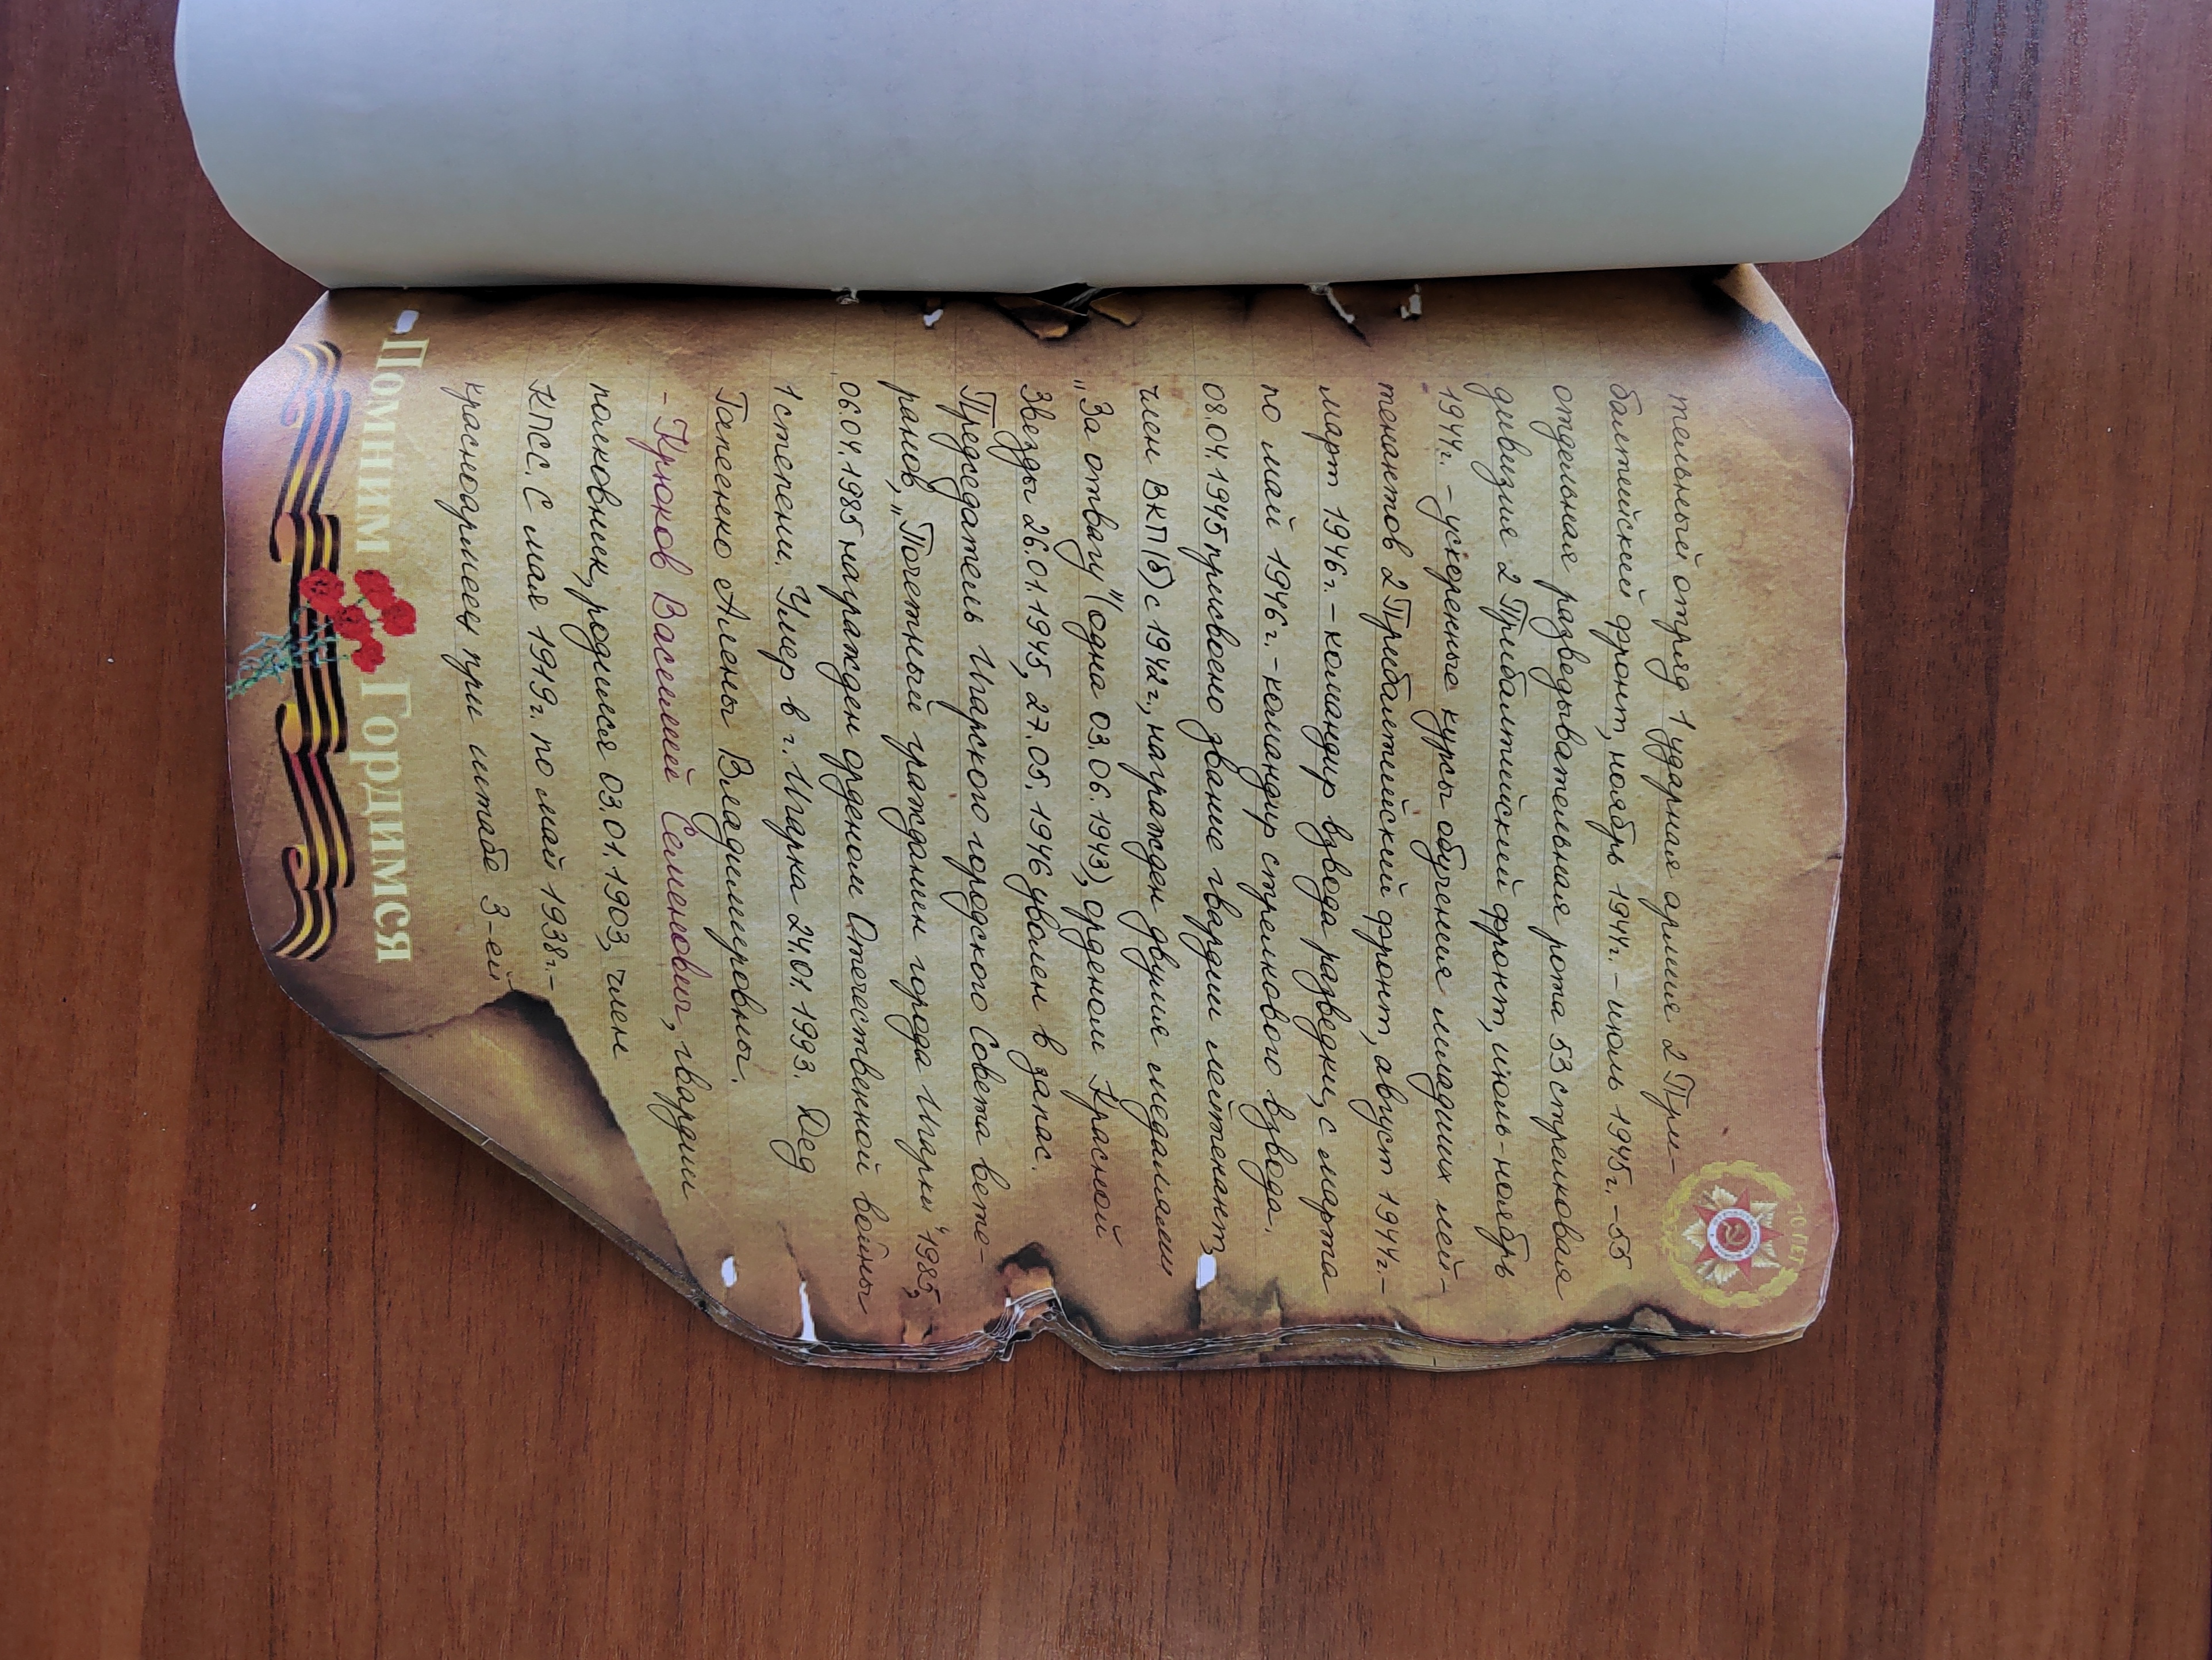 70 ЛЕТ
тельный отряд 1 ударная армия 2 При-
балтийский фронт, ноябрь 1944г. – июль 1945г. – 55
отдельная разведывательная рота 53 стрелковая
дивизия 2 Прибалтийский фронт, июль-ноябрь
1944г. – ускоренные курсы обучения младших лей-
тенантов 2 Прибалтийский фронт, август 1944г.–
март 1946г. – командир взвода разведки, с марта
по май 1946г. – командир стрелкового взвода.
08.04.1945 присвоено звание гвардии лейтенант,
член ВКП(б) с 1942г., награжден двумя медалями
„За отвагу" (одна 03.06.1943), орденом Красной
Звезды 26.01.1945, 27.05.1946 уволен в запас.
Председатель Игарского городского Совета вете-
ранов, „Почетный гражданин города Игарки" 1985,
06.04.1985 награжден орденом Отечественной войны
1 степени. Умер в г. Игарка 24.01.1993. Дед
Гапеенко Алены Владимировны.
- Крюков Василий Семенович, гвардии
полковник, родился 03.01.1903, член
КПСС. С мая 1919г. по май 1938г.–
красноармеец при штабе 3-ей
Помним Гордимся